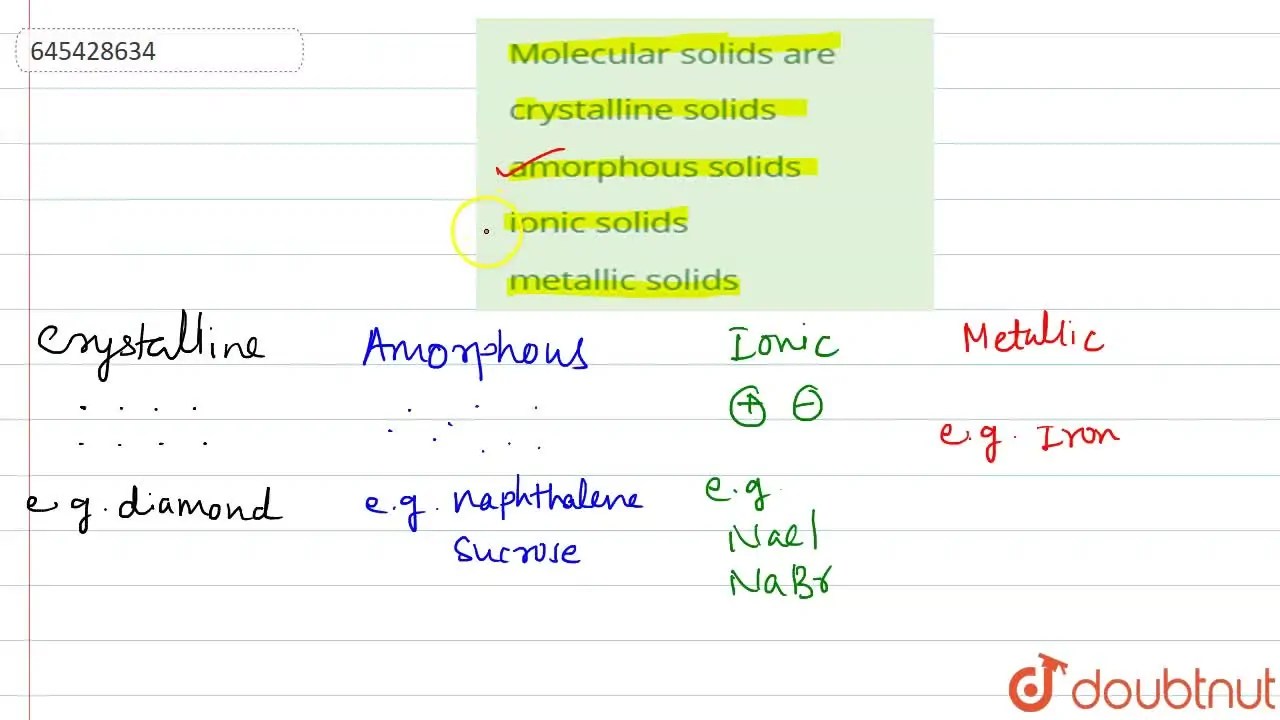 645428634
Molecular solids are
crystalline solids
amorphous solids
ionic solids
metallic solids
Crystalline Amorphous Ionic Metallic
+ −
e.g. Iron
e.g. diamond e.g. naphthalene e.g.
Sucrose NaCl
NaBr
doubtnut